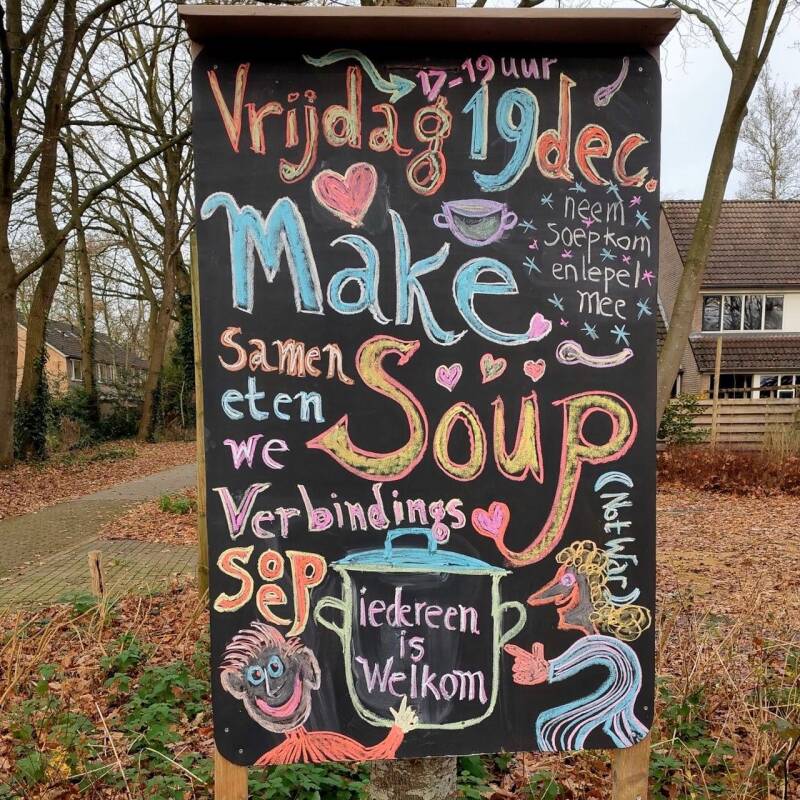 17-19 uur
Vrijdag 19 dec.
Make
neem
soepkom
en lepel
mee
Samen
eten
we
Soup
(Not War)
Verbindings
Soep
iedereen
is
Welkom